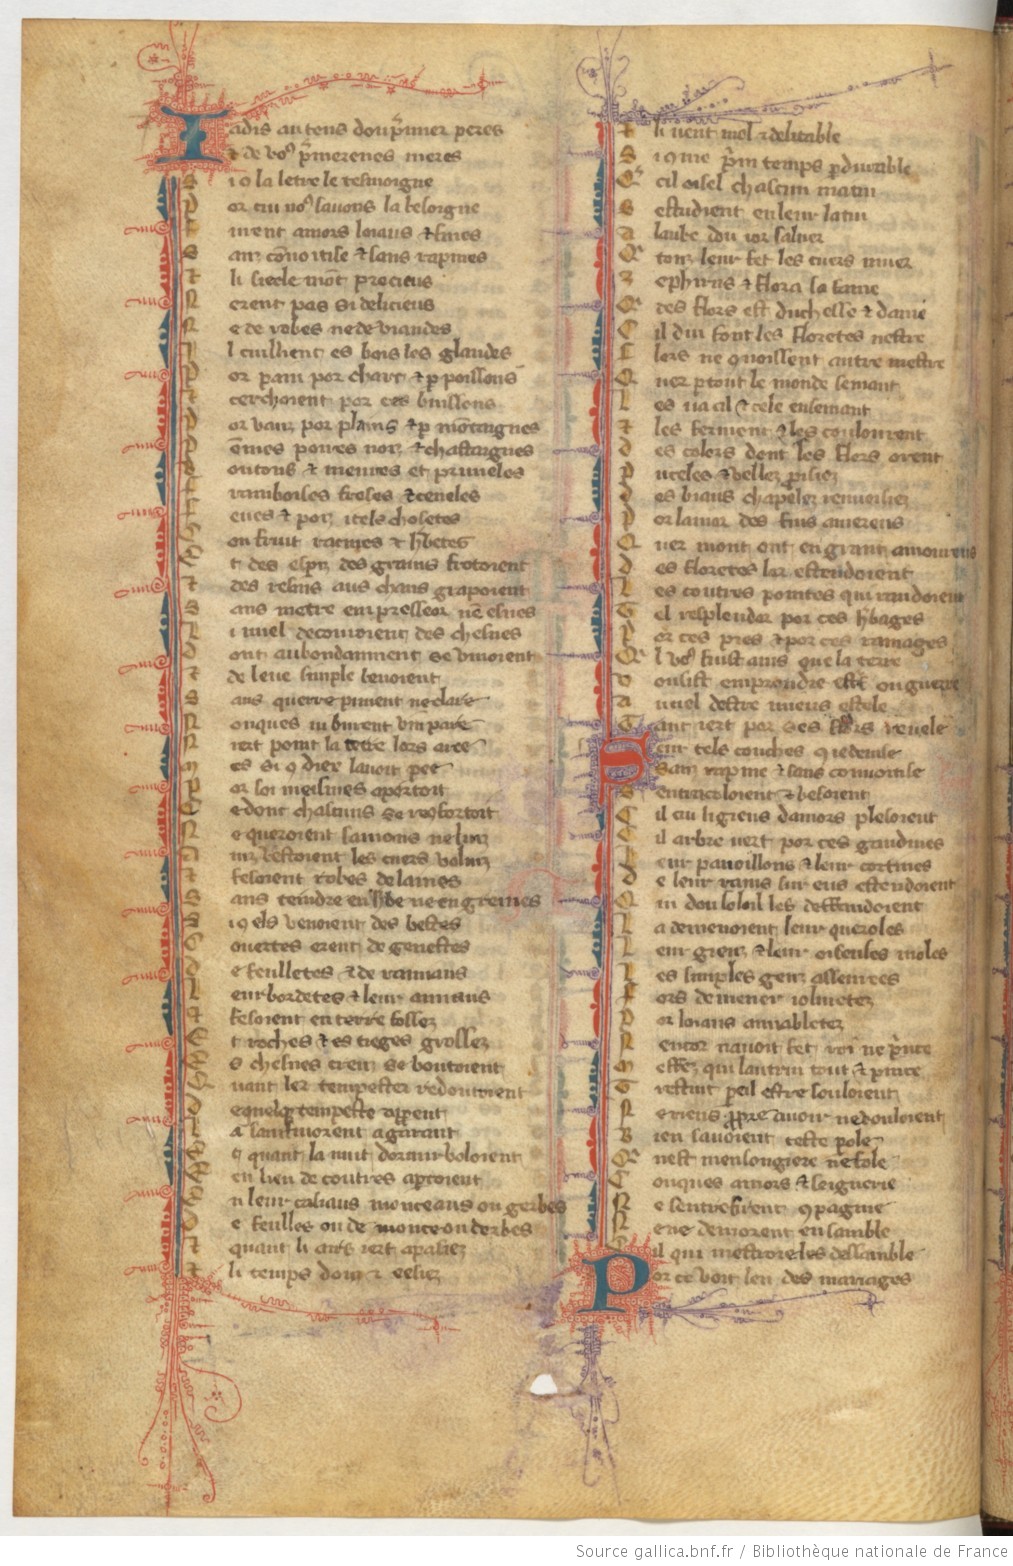 Jadis au tens dou p̃mier peres
Et de vos p̃merenes meres
Si o la letre le tesmoigne
Por cui vos savons la besoigne
Furent amors loiaus & fines
Sanz covoitise & sans rapines
Li siecle mot precieus
N'erent pas si delicieus
Ne de robes ne de viandes
Il cuilloient es bois les glandes
Por pain por chars & p poissons
Et cerchoient par ces buissons
Por vaus por plains & p montaignes
Pomes poires noiz & chastaignes
Boutons & meures et pruneles
Framboises freses & ceneles
Feves & poiz itels chosetes
Con fruit racines & herbetes
Et des espiz des grains frotoient
Et des resins aus chans grapoient
Sans metre em presseor
decouroient des chesnes
Dont aubondanment se vivoient
de leue simple bevoient
Sans querre piment ne clare
N'onques ni burent vin pare
N'iert point la terre lors aree
Mes si 9 diex lavoit
Par soi meismes aportoit
Ce dont chascuns se confortoit
Ne queroient saumons ne luz
Ainz vestoient les cuers veluz
Et fesoient robes de laines
Sans teindre en herbe ne en greines
Si 9 els venoient des bestes
Couvertes erent de genestes
De feulletes & de ramiaus
Leur bordetes & leur amiaus
Et fesoient en terre fosses
Et roches & es tieges grosses
Des chesnes creus se boutoient
Quant les tempestes redoutoient
De quelque tempeste aparent
A sauf morent a garant
Et quant la nuit dormir voloient
En lieu de coutres aportoient
En leur casiaus monceaus ou gerbes
De feulles ou de mouce ou derbes
Et quant li airs iert apaisiez
Et li temps douz & eesiez
Et li vent mol & delitable
Si 9 me p̃in temps pdurable
Que cil oisel chascun matin
Sestudient en leur latin
A laube dou ior saluer
Qui touz leur fet les cuers muer
Zephirus & flora sa fame
Qui des flors est duchesse & dame
Cil dui font les floretes nestre
Flors ne quoissent autre mestre
Quer p tout le monde semant
Les va cil & cele ensemant
Et les forment & les coulourent
Des colors dont les flors orent
Puceles & vellez prisiez
Des biaus chapelez renvoisiez
Por lamor des fins amereus
Quer mont ont en grant amoureus
Des floretes lor estendoient
Les coutres pointes qui rendoient
Tel resplendor par ces herbages
Par ces prez & par ces ramages
Quil vos fust avis que la terre
Vousist emprendre estrif ou guerre
Au ciel destre mieus estelee
Tant iert por ses flors revelee
Seur tels couches 9 ie devise
Sanz rapine & sans covoitise
Sentracoloient & besoient
Cil cui li gieus damors plesoient
Cil arbre vert par ces gaudines
Leur pavoillons & leur cortines
De leur rains sur eus estendoient
Qui dou soloil les deffendoient
La demenoient leur queroles
Leur gieuz & leur oiseuses moles
Les simples genz asseurees
Fors de mener iolivetez
Par loiaus amiabletez
N'encor navoit fet roi ne p̃nce
Meffez qui lautrui tout & pince
Trestuit pareil estre souloient
Ne riens propre avoir ne vouloient
Bien savoient ceste parole
Qui nest mensongiere ne fole
Conques amors & seignerie
Ne sentrefirent 9pagnie
Ne ne demorent ensamble
Cil qui mestroie les dessamble
Por ce voit len des mariages
Source gallica.bnf.fr / Bibliothèque nationale de France